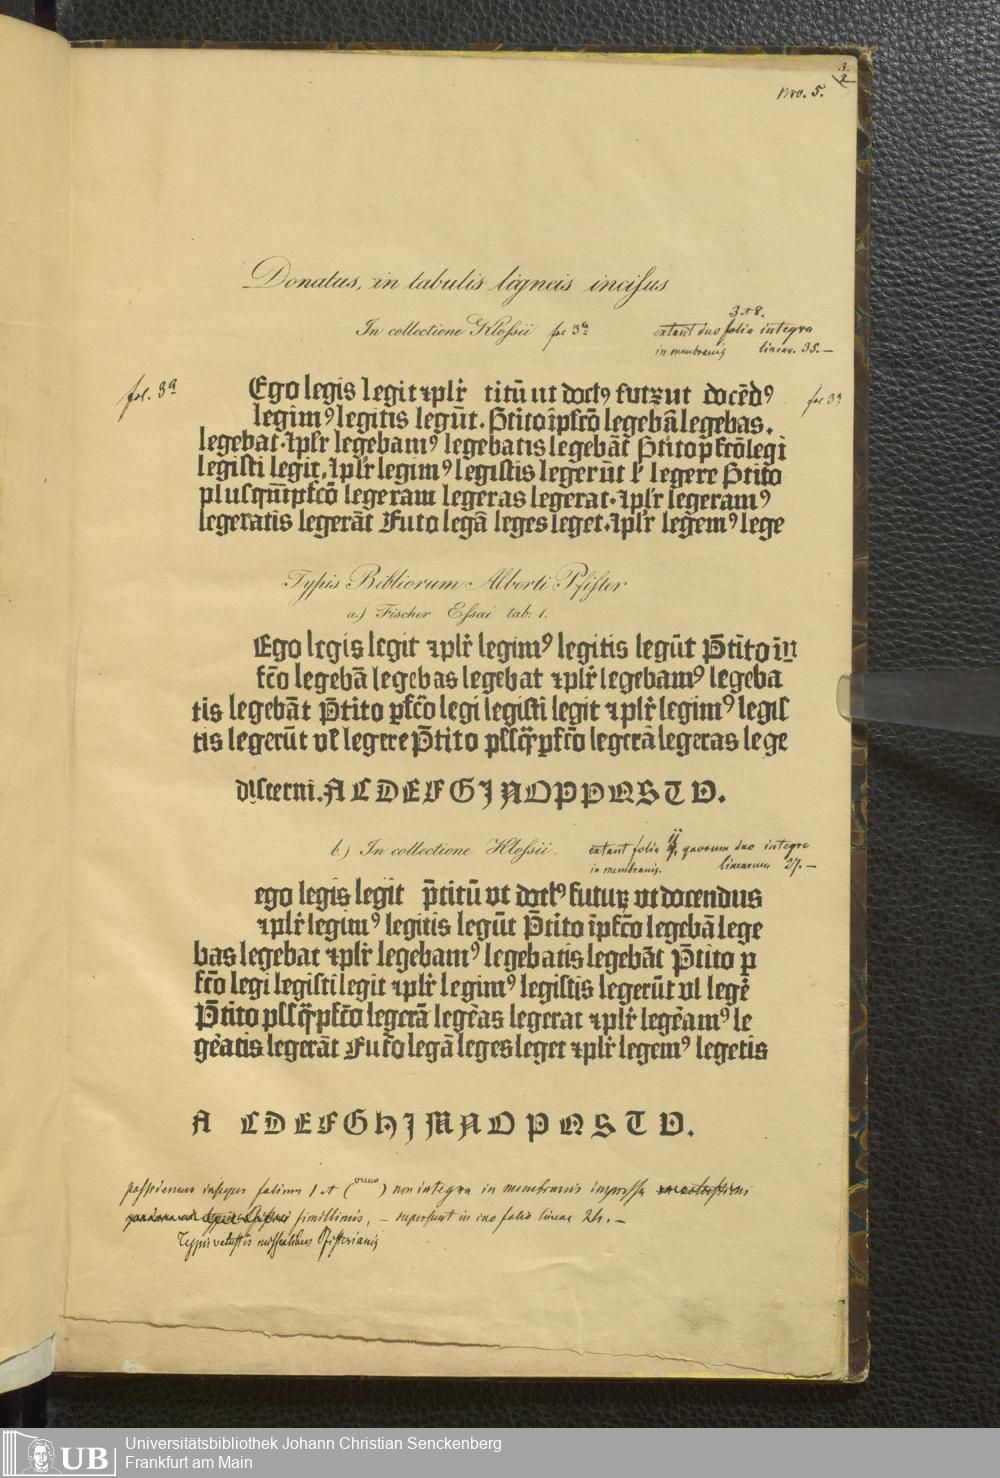 3.
2
Nro. 5.
Donatus, in tabulis ligneis incisus
In collectione Klossii fol 3ª
3 + 8.
extant duo folia integra
in membranis linear. 35. –
fol. 3ª
fol 3ª
Ego legis legit ⁊plr̄ titū ut doctꝰ futꝝ ut docēdꝰ
legimꝰ legitis legūt. P̄tito īpfcō legebā legebas.
legebat. ⁊plr̄ legebamꝰ legebatis legebāt P̄tito pfcō legi
legisti legit. ⁊plr̄ legimꝰ legistis legerūt ł legere P̄tito
plusqm̄pfcō legeram legeras legerat. ⁊plr̄ legeramꝰ
legeratis legerāt Futo legā leges leget. ⁊plr̄ legemꝰ lege
Typis Bibliorum Alberti Pfister
a.) Fischer Essai tab: 1.
Ego legis legit ⁊plr̄ legimꝰ legitis legūt P̄tito īn
fc̄o legebā legebas legebat ⁊plr̄ legebamꝰ legeba
tis legebāt P̄tito ꝑfc̄o legi legisti legit ⁊plr̄ legimꝰ legis
tis legerūt vł legere P̄tito pſſq̄ꝫpfc̄o legerā legeras lege
discerni. A C D E F G I N O P P Q S T V.
b.) In collectione Klossii.
extant folia quorum duo integra
in membranis. linearum 27. –
ego legis legit p̄titū ut doctꝰ futuꝝ ut docendus
⁊plr̄ legimꝰ legitis legūt P̄tito īpfc̄o legebā lege
bas legebat ⁊plr̄ legebamꝰ legebatis legebāt P̄tito ꝑ
fc̄o legi legisti legit ⁊plr̄ legimꝰ legistis legerūt vl legē
P̄tito pſſq̄ꝫpfc̄o legerā legēas legerat ⁊plr̄ legēamꝰ le
gēatis legerāt Futo legā leges leget ⁊plr̄ legemꝰ legetis
A C D E F G H I M N O P Q S T V.
possidemus insuper folium 1 et (unum) non integra in membranis impressa
simillimis, – supersunt in uno folio lineae 24. –
Typis vetustis missalibus Pfisterianis
UB
Universitätsbibliothek Johann Christian Senckenberg
Frankfurt am Main